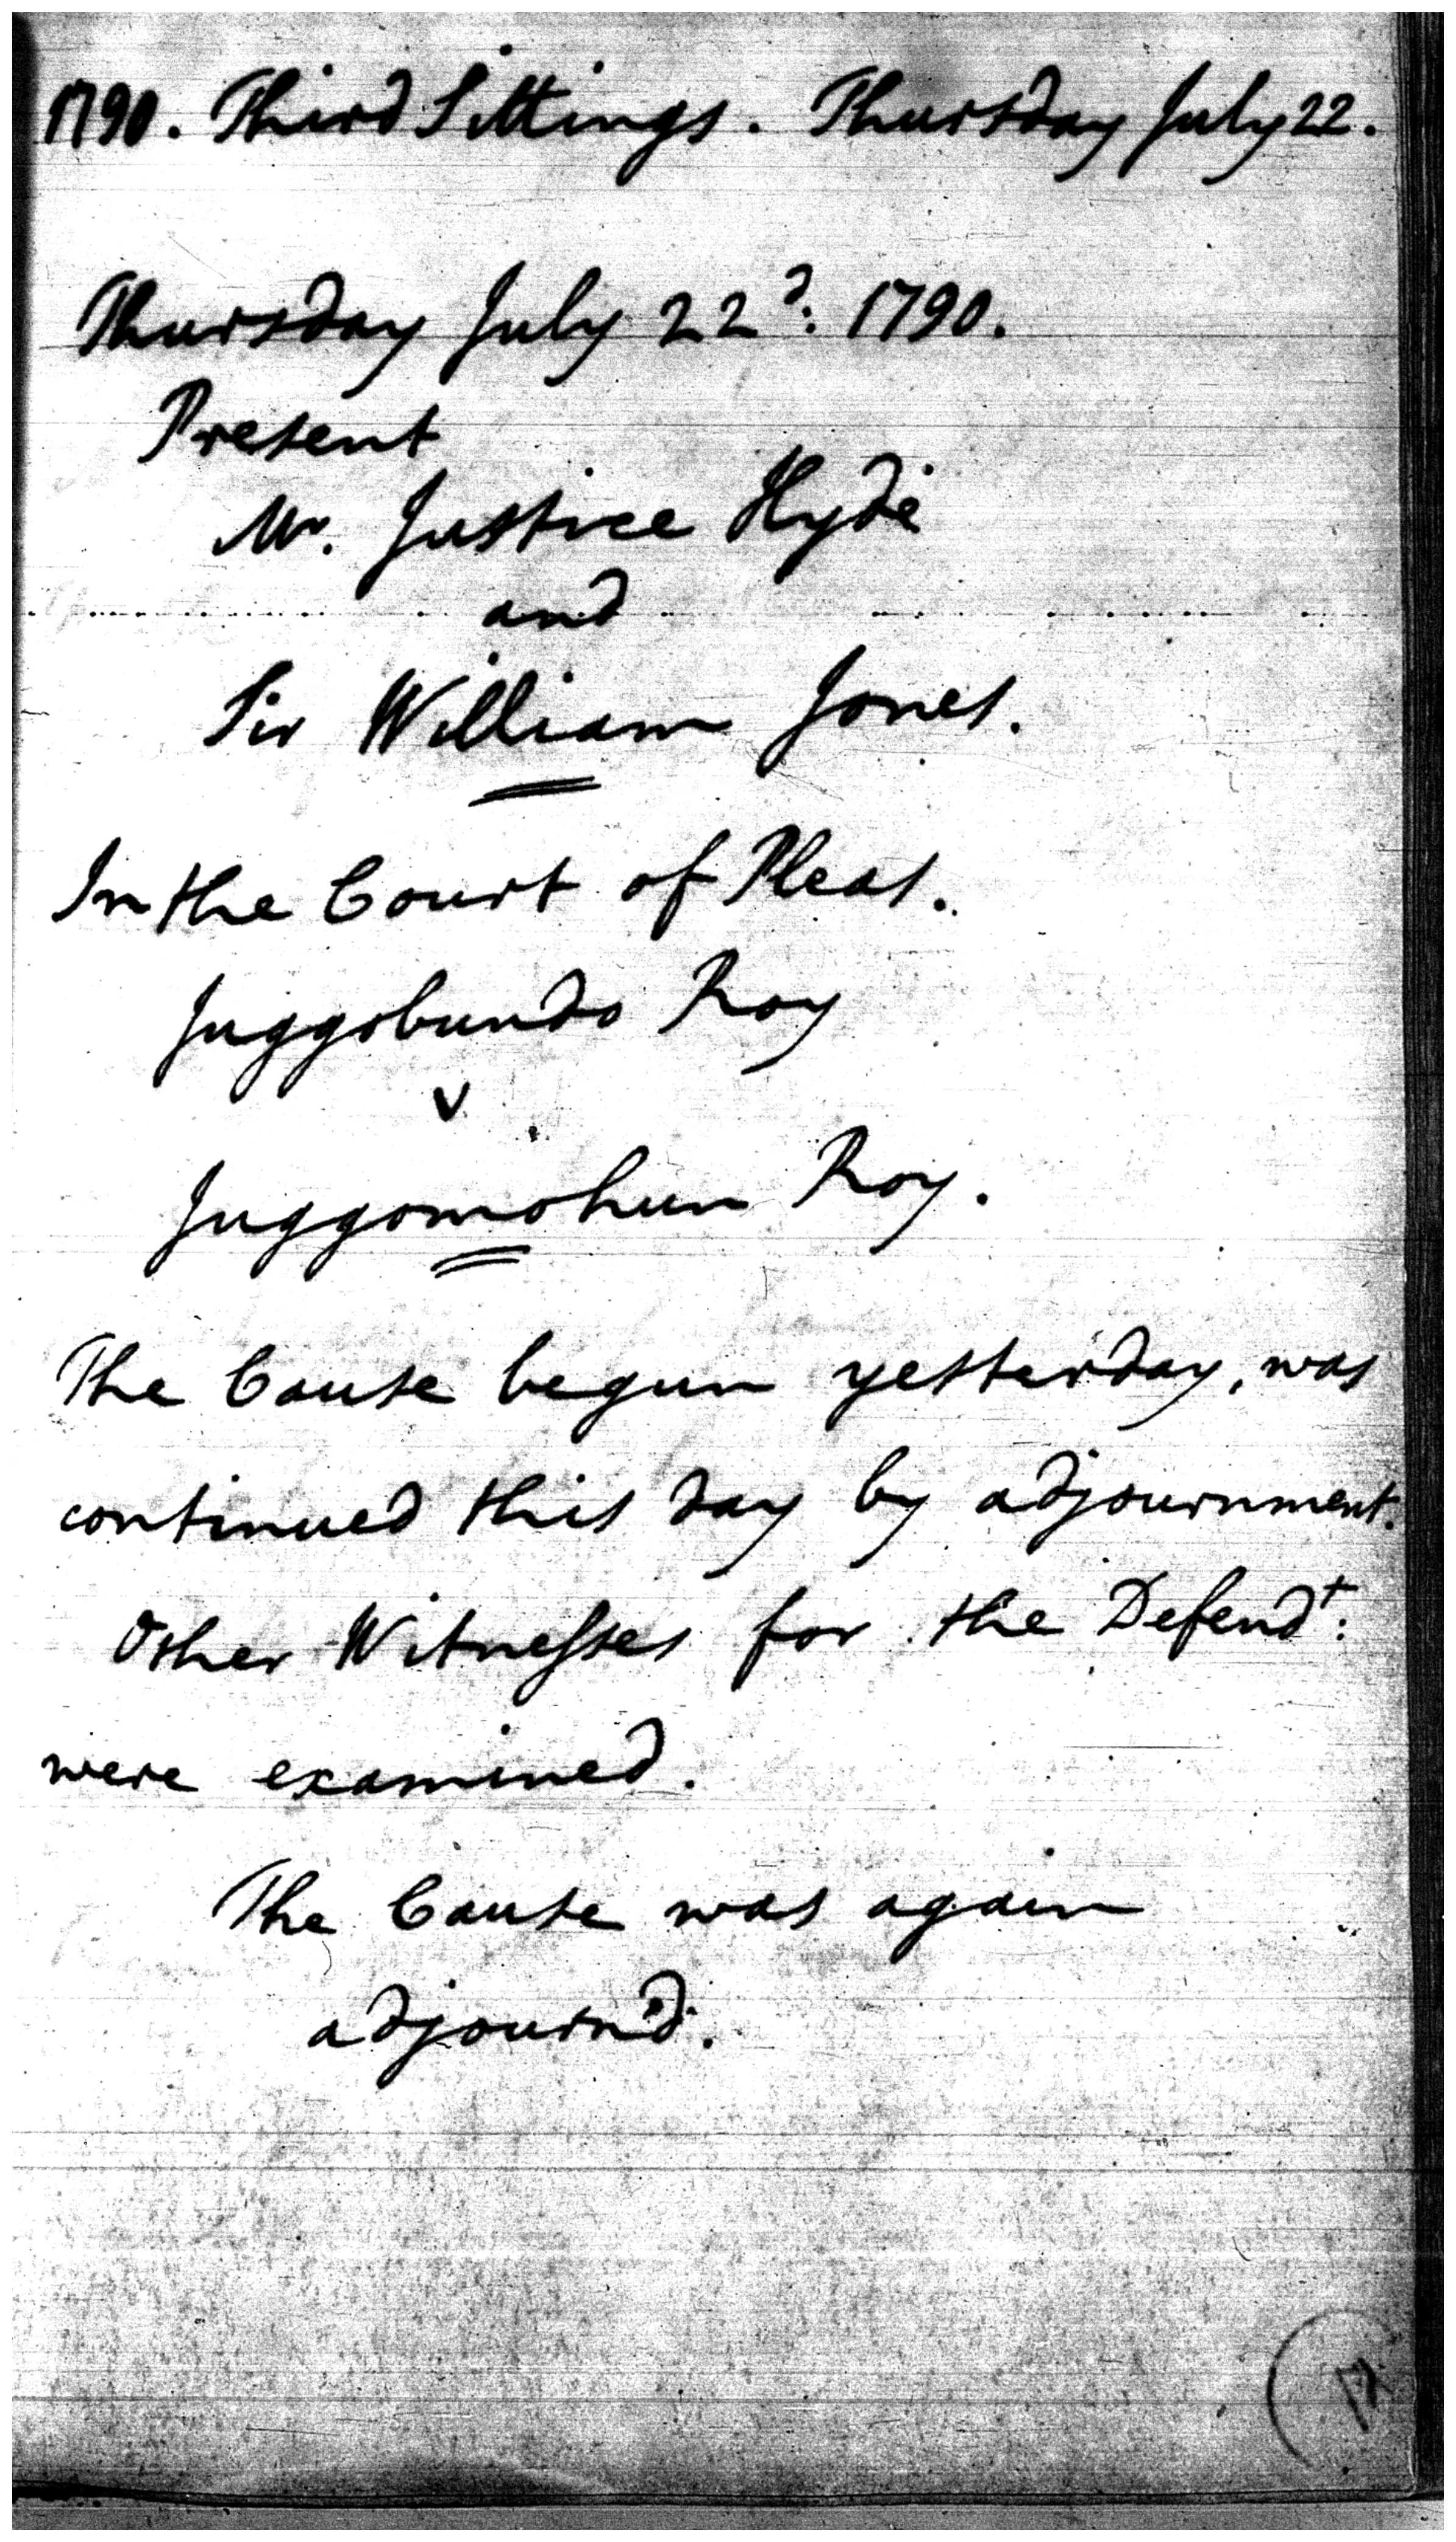 1790. Third Sittings. Thursday July 22.
Thursday July 22d: 1790.
Present
Mr. Justice Hyde
and
Sir William Jones.
In the Court of Pleas.
Juggobundo Roy
v
Juggomohun Roy.
The Cause begun yesterday, was
continued this day by adjournment.
Other Witnesses for the Defendt:
were examined.
The Cause was again
adjourn'd.